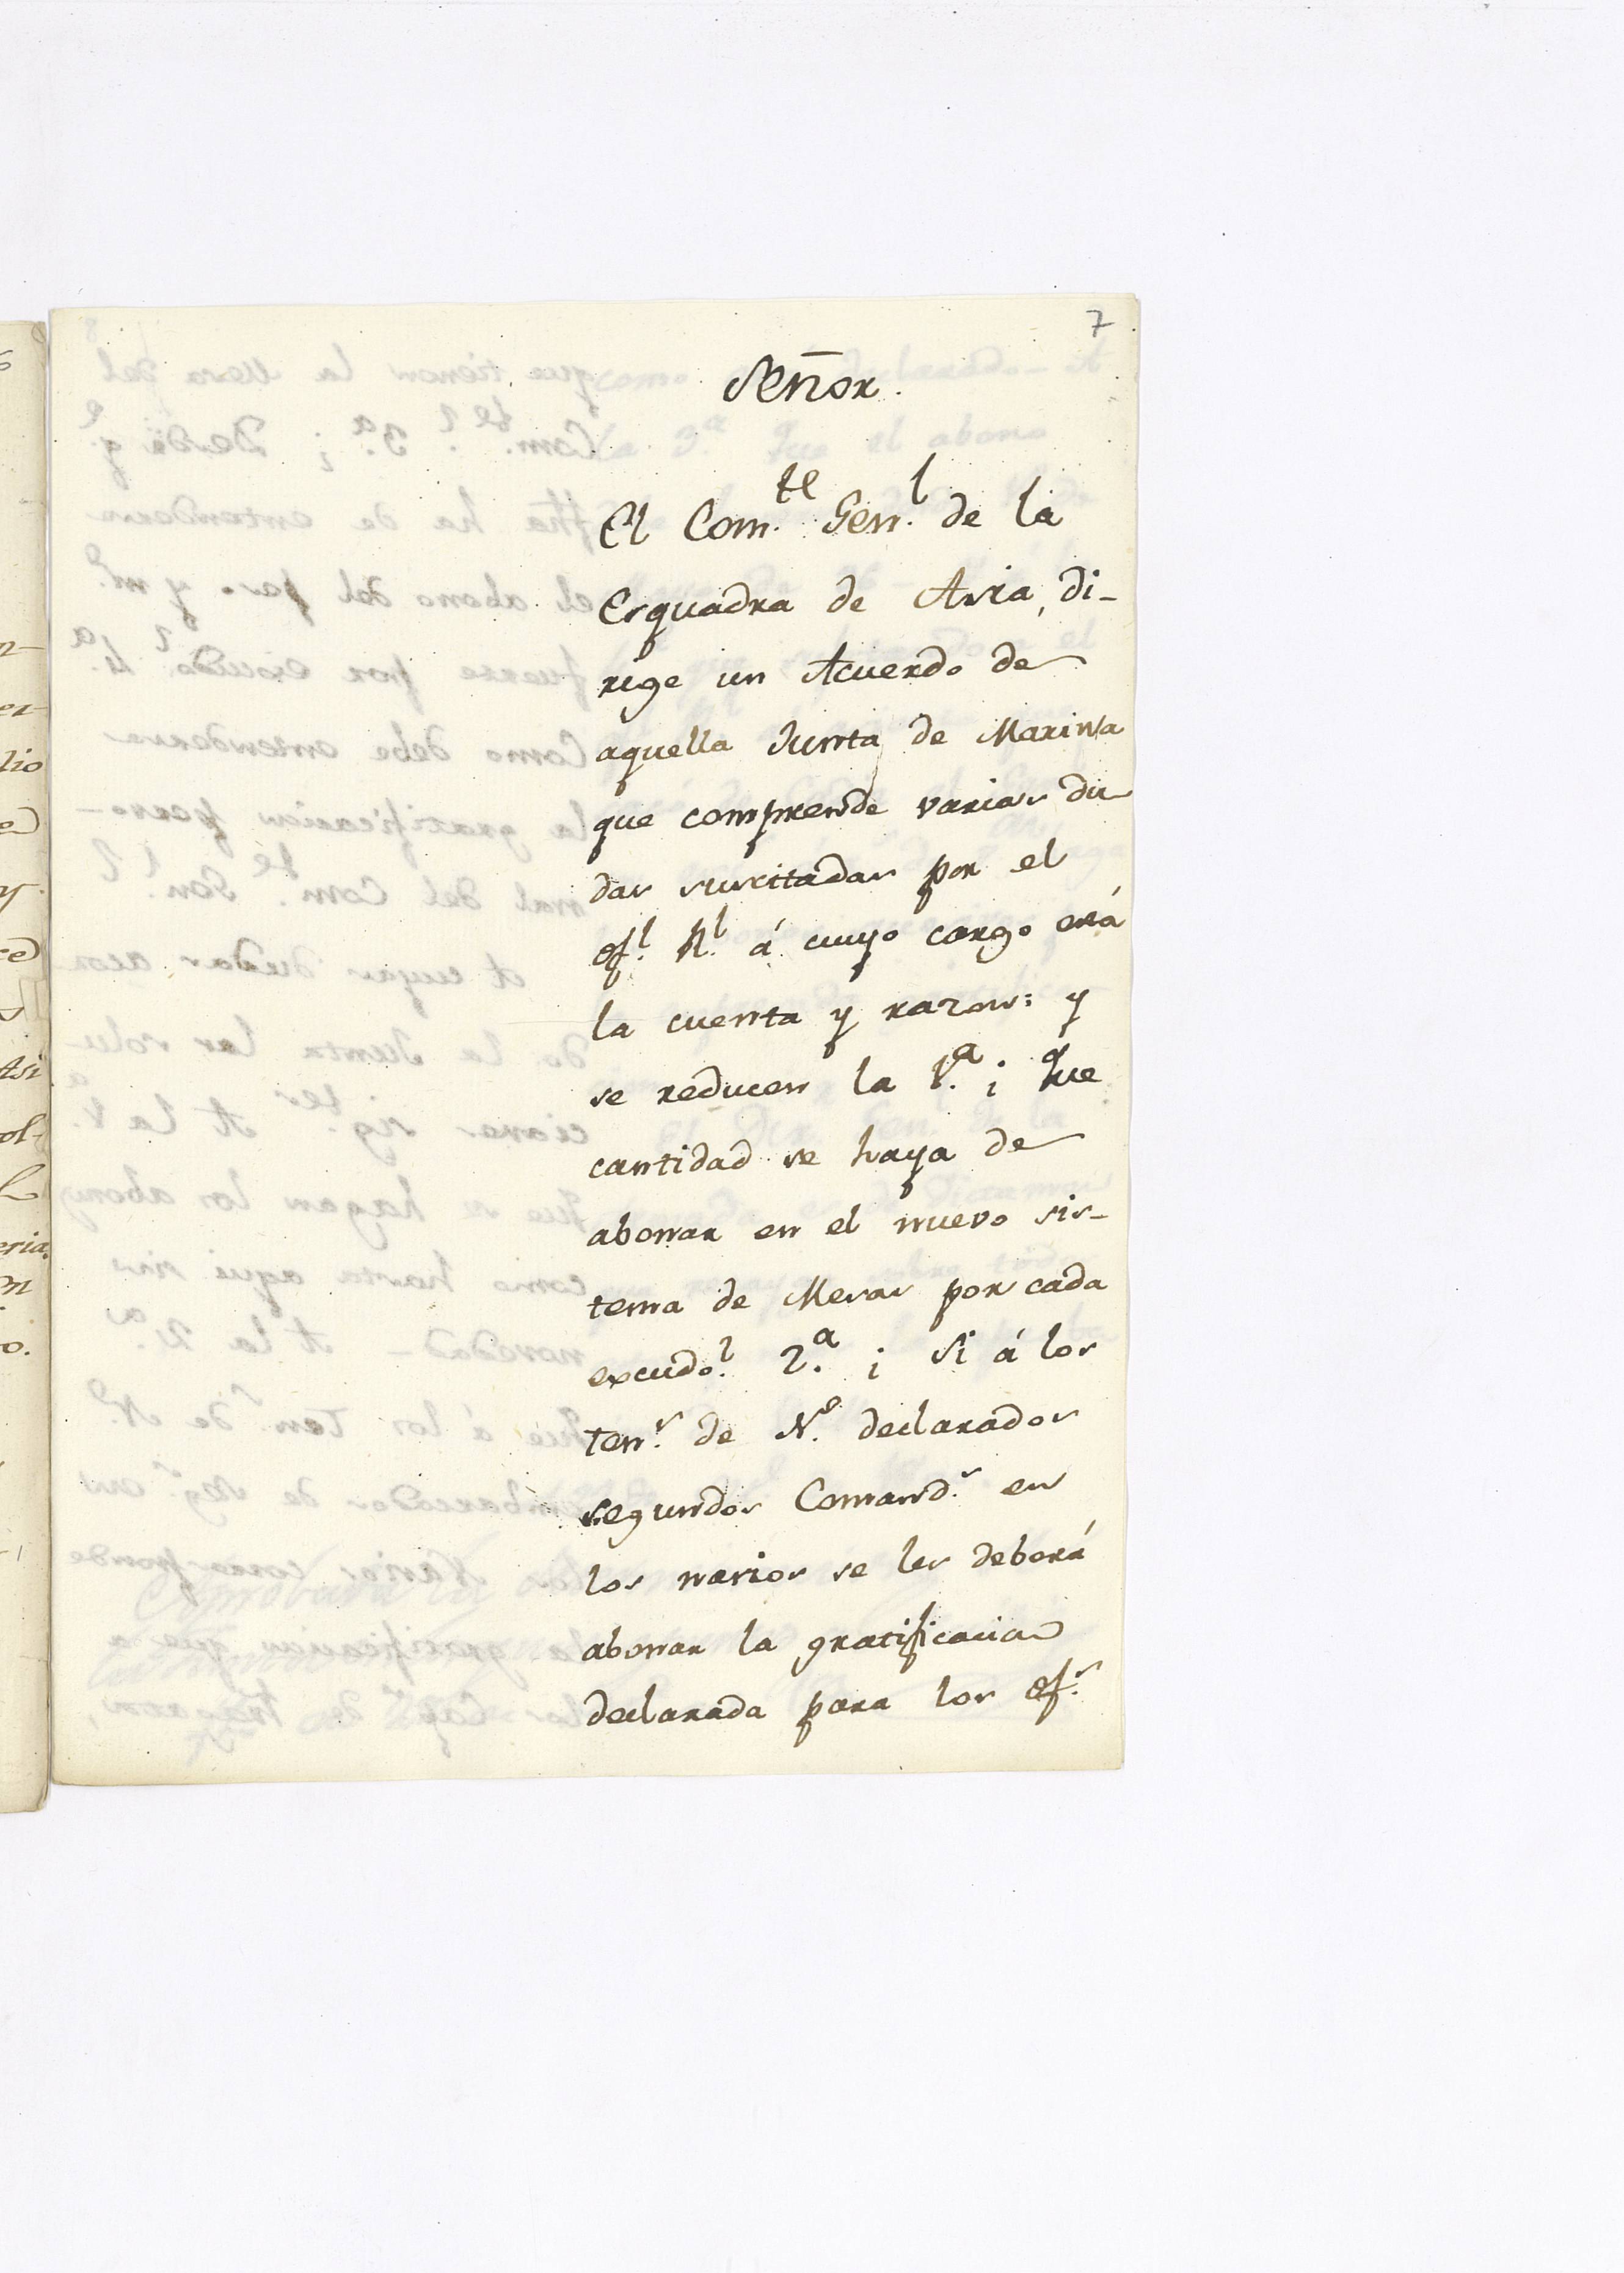 7
Señor.
El Com.te Gen.l de la
Esquadra de Asia, di-
rige un Acuerdo de
aquella Junta de Marina
que comprende varias du
das suscitadas por el
of.l R.l á cuyo cargo está
la cuenta y razon: y
se reducen la 1.a ¿ Que
cantidad se haya de
abonar en el nuevo sis-
tema de Mesas por cada
escudo? 2.a ¿ Si á los
ten.s de N.o declarados
segundos Comand.s en
los navios se les deberá
abonar la gratificacion
declarada para los of.s